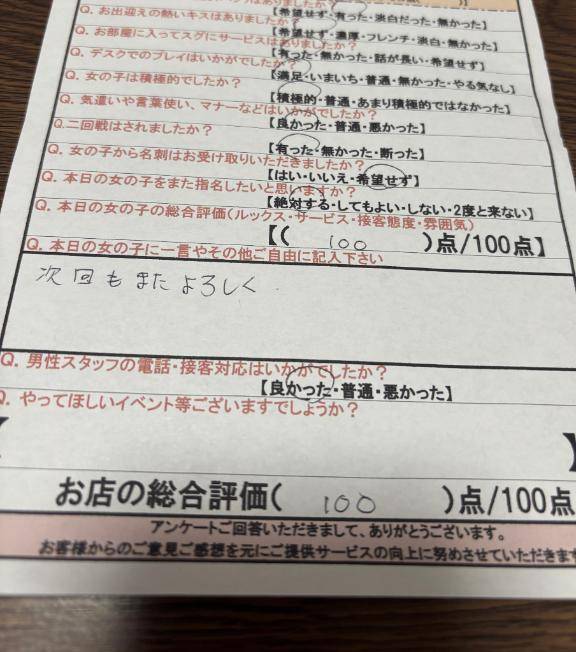 はありましたか？
Q. お出迎えの熱いキスはありましたか？
【希望せず・有った・淡白だった・無かった】
Q. お部屋に入ってスグにサービスはありましたか？
【希望せず・濃厚・フレンチ・淡白・無かった】
Q. デスクでのプレイはいかがでしたか？
【有った・無かった・話が長い・希望せず】
Q. 女の子は積極的でしたか？
【満足・いまいち・普通・無かった・やる気なし】
Q. 気遣いや言葉使い、マナーなどはいかがでしたか？
【積極的・普通・あまり積極的ではなかった】
Q.二回戦はされましたか？
【良かった・普通・悪かった】
Q. 女の子から名刺はお受け取りいただきましたか？
【有った・無かった・断った】
Q. 本日の女の子をまた指名したいと思いますか？
【はい・いいえ・希望せず】
【絶対する・してもよい・しない・2度と来ない】
Q. 本日の女の子の総合評価(ルックス・サービス・接客態度・雰囲気)
【( 100 )点/100点】
Q. 本日の女の子に一言やその他ご自由に記入下さい
次回もまたよろしく
Q. 男性スタッフの電話・接客対応はいかがでしたか？
【良かった・普通・悪かった】
Q. やってほしいイベント等ございますでしょうか？
【 】
お店の総合評価( 100 )点/100点
アンケートご回答いただきまして、ありがとうございます。
お客様からのご意見ご感想を元にご提供サービスの向上に努めさせていただきます